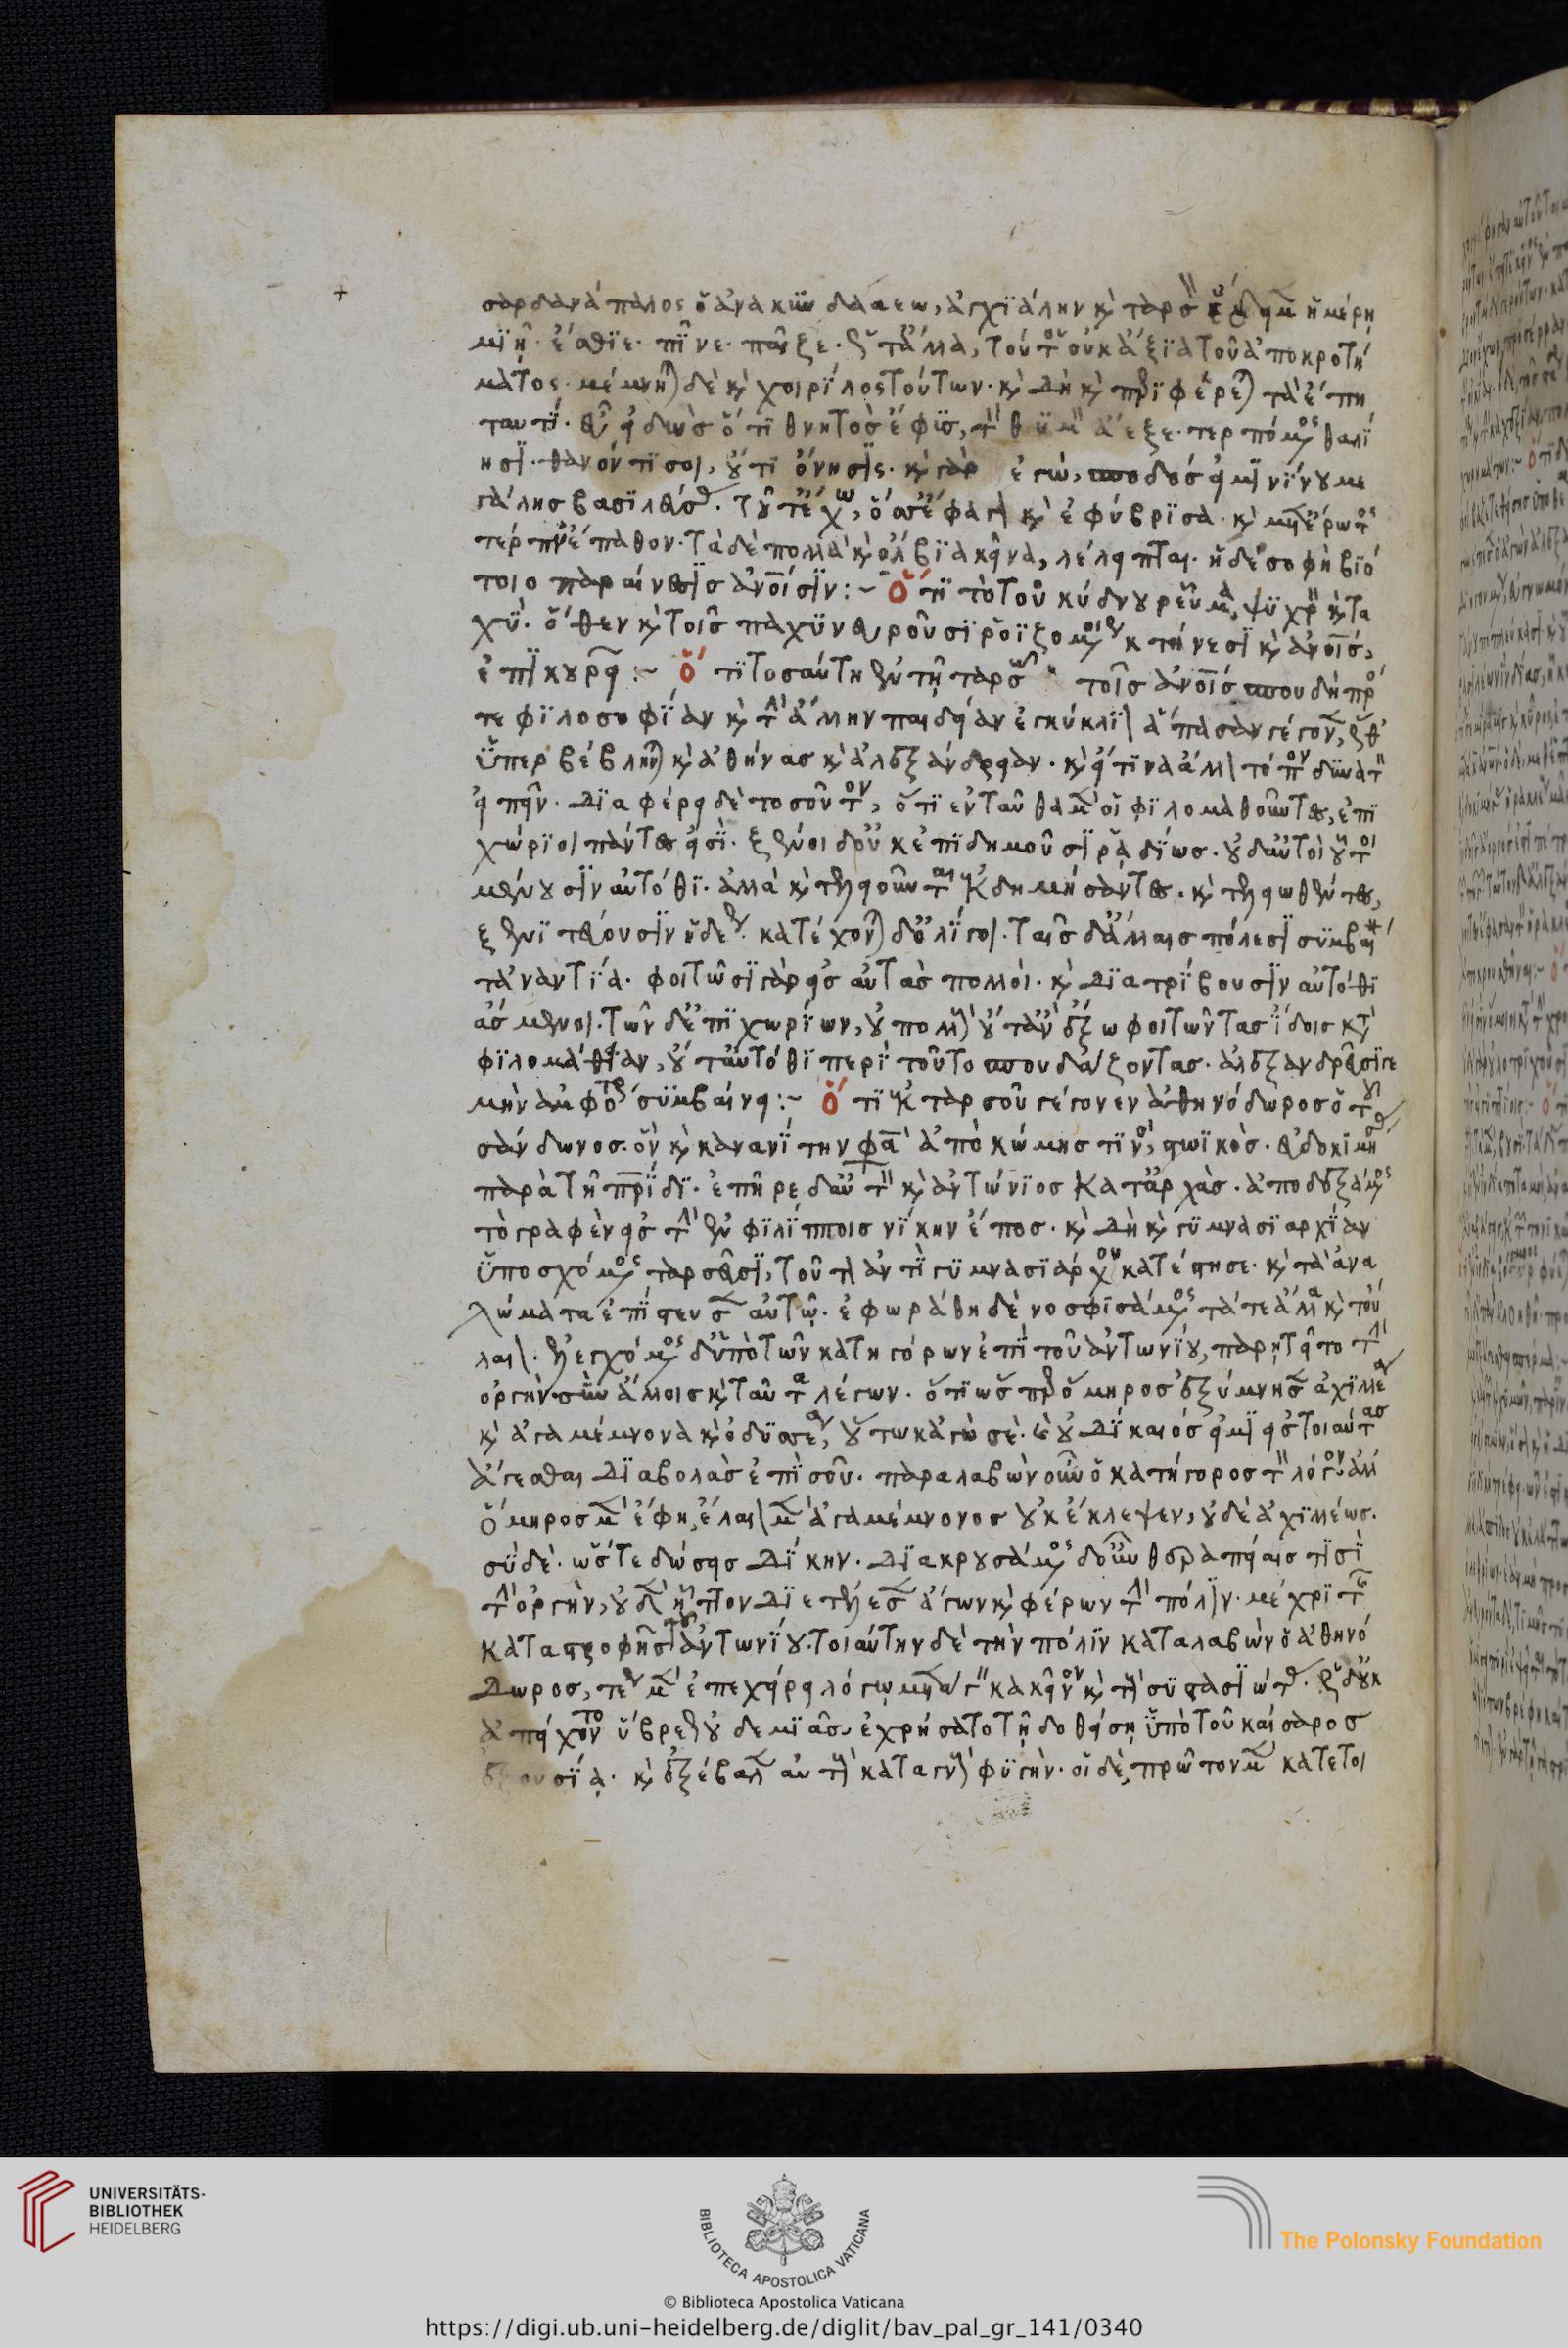 σαρδανάπαλος ὁ ἀνακυνδαάξεω, ἀγχιάλην κ̀ ταρσὸν ἔδειμεν ἡμέρῃ
μιῇ· ἔσθιε· πῖνε· παῖζε· ὡς τἄλλα, τούτου οὐκ ἄξια τοῦ ἀποκροτή
ματος· μέμνηται δὲ κ̀ χοιρίλος τούτων· κ̀ δὴ κ̀ περιφέρεται τὰ ἔπη
ταυτί· εὖ εἰδὼς ὅτι θνητὸς ἔφυς, τὸν θυμὸν ἄεξε· τερπόμενος θαλί
ησι· θανόντι σοι, οὔτι ὄνησις· κ̀ γὰρ ἐγὼ, σποδός εἰμι νίνου με
γάλης βασιλεύσας· ταῦτ' ἔχω, ὅσ' ἔφαγον κ̀ ἐφύβρισα· κ̀ μετ' ἔρωτος
τέρπν' ἔπαθον· τὰ δὲ πολλὰ κ̀ ὄλβια κεῖνα, λέλειπται· ἥδε σοφὴ βιό
τοιο παραίνεσις ἀνοισιν:~ Ὅτι τὸ τοῦ κύδνου ρεῦμα, ψυχρὸν κ̀ τα
χύ· ὅθεν κ̀ τοῖς παχυνευροῦσι ῥοϊζομένοις κτήνεσι κ̀ ἀνοις,
ἐπικουρεῖ:~ Ὅτι τοσαύτη ἐν τῇ ταρσῷ τοῖς ἀνοις σπουδὴ πρός
τε φιλοσοφίαν κ̀ τὴν ἄλλην παιδείαν ἐγκύκλιον ἅπασαν γέγονεν, ὥσθ'
ὑπερβέβληνται κ̀ ἀθήνας κ̀ ἀλεξάνδρειαν· κ̀ εἴ τινα ἄλλον τόπον δυνατὸν
εἰπεῖν· διαφέρει δὲ τοσοῦτον, ὅτι ἐνταῦθα μὲν οἱ φιλομαθοῦντες, ἐπι
χώριοι πάντες εἰσί· ξένοι δ' οὐκ ἐπιδημοῦσι ρᾳδίως· οὐδ' αὐτοὶ οὗτοι
μένουσιν αὐτόθι· ἀλλὰ κ̀ τελειοῦνται ἐκδημήσαντες· κ̀ τελειωθέντες,
ξενιτεύουσιν ἡδέως· κατέρχονται δ' ὀλίγοι· ταῖς δ' ἄλλαις πόλεσι συμβαί
τἀναντία· φοιτῶσι γὰρ εἰς αὐτὰς πολλοὶ· κ̀ διατρίβουσιν αὐτόθι
ἄσμενοι· τῶν δ' ἐπιχωρίων, οὐ πολλοὺς οὔτ' ἂν ἔξω φοιτῶντας ἴδοις κατὰ
φιλομάθειαν, οὔτ' αὐτόθι περὶ τοῦτο σπουδάζοντας· ἀλεξανδρεῦσί γε
μὴν ἀμφότερα συμβαίνει:~ Ὅτι ἐκ ταρσοῦ γέγονεν ἀθηνόδωρος ὁ τοῦ
σάνδωνος· ὃν κ̀ κανανίτην φασὶν ἀπὸ κώμης τινός, ᾠκειωμένος· εὐδοκιμή
παρὰ τῇ πατρίδι· ἐπῆρε δ' αὐτὸν κ̀ ἀντώνιος κατ' ἀρχὰς· ἀποδεξάμενος
τὸ γραφὲν εἰς τὴν ἐν φιλίπποις νίκην ἔπος· κ̀ δὴ κ̀ γυμνασιαρχίαν
ὑποσχόμενος ταρσεῦσι, τοῦτον ἀντὶ γυμνασιάρχου κατέστησε· κ̀ τὰ ἀνα
λώματα ἐπίστευσεν αὐτῷ· ἐφωράθη δὲ νοσφισάμενος τά τε ἄλλα κ̀ τοὔ
λαιον· ἐλεγχόμενος δ' ὑπὸ τῶν κατηγόρων ἐπὶ τοῦ ἀντωνίου, παρῃτεῖτο τὴν
ὀργὴν σὺν ἄλλοις κ̀ ταῦτα λέγων· ὅτι ὥσπερ ὅμηρος ἐξύμνησεν ἀχιλλέα
κ̀ ἀγαμέμνονα κ̀ ὀδυσσέα, οὕτω κἀγὼ σέ· οὐ δίκαιός εἰμι εἰς τοιαύτας
ἄγεσθαι διαβολὰς ἐπὶ σοῦ· παραλαβὼν οὖν ὁ κατήγορος τὸν λόγον· ἀλλ'
ὅμηρος μὲν ἔφη, ἔλαιον μὲν ἀγαμέμνονος οὐκ ἔκλεψεν, οὐδὲ ἀχιλλέως·
σὺ δὲ· ὥστε δώσεις δίκην· διακρουσάμενος δ' οὖν θεραπείαις τισὶ
τὴν ὀργὴν, οὐδὲν ἧττον διετέλεσεν ἄγων κ̀ φέρων τὴν πόλιν· μέχρι τῆς
καταστροφῆς τοῦ ἀντωνίου· τοιαύτην δὲ τὴν πόλιν καταλαβὼν ὁ ἀθηνό
δωρος, τέως μὲν ἐπεχείρει λόγῳ μετάγειν κἀκεῖνον κ̀ τοὺς συστασιώτας· ὡς δ' οὐκ
ἀπείχοντο ὕβρεως οὐδεμιᾶς, ἐχρήσατο τῇ δοθείσῃ ὑπὸ τοῦ καίσαρος
ἐξουσίᾳ· κ̀ ἐξέβαλεν αὐτοὺς καταγνοὺς φυγήν· οἱ δὲ, πρῶτον μὲν κατετοι
UNIVERSITÄTS-
BIBLIOTHEK
HEIDELBERG
BIBLIOTECA APOSTOLICA VATICANA
The Polonsky Foundation
© Biblioteca Apostolica Vaticana
https://digi.ub.uni-heidelberg.de/diglit/bav_pal_gr_141/0340